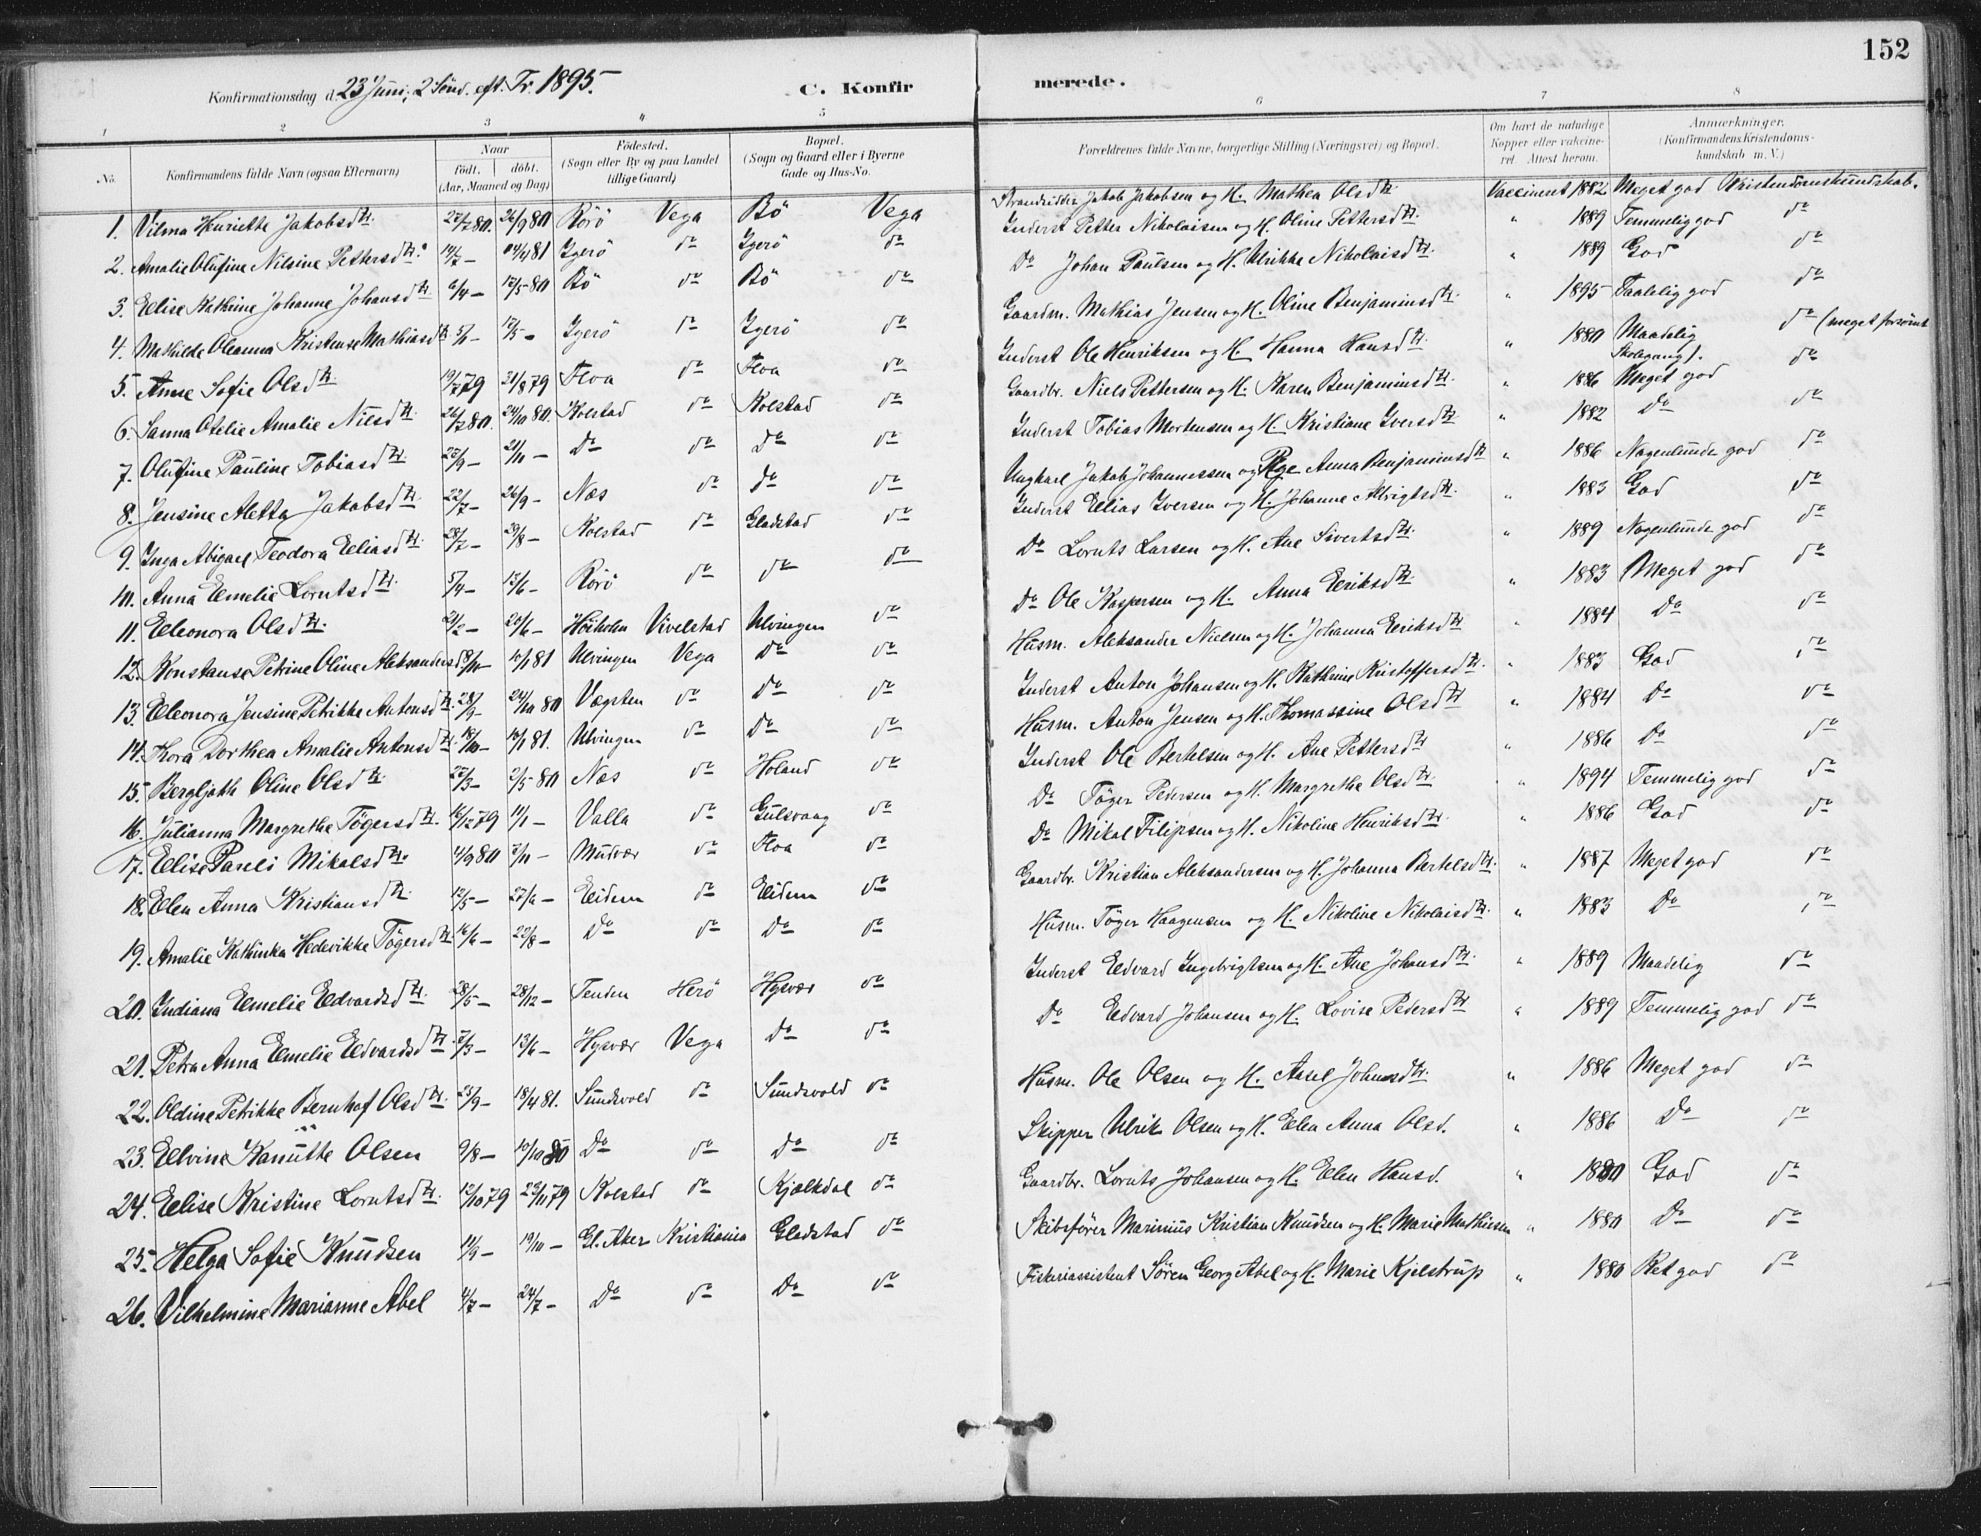 152
Konfirmationsdag d. 23 Juni, 2 Sönd. eft. Tr. 1895.
C. Konfirmerede.
1 2 3 4 5 6 7 8
No. Konfirmandens fulde Navn (ogsaa Efternavn) Naar födt. döbt. (Aar, Maaned og Dag) Födested. (Sogn eller By og paa Landet tillige Gaard) Bopæl. (Sogn og Gaard eller i Byerne Gade og Hus-No. Forældrenes fulde Navne, borgerlige Stilling (Næringsvei) og Bopæl. Om havt de naturlige Kopper eller vaccineret. Attest herom. Anmærkninger. (Konfirmandens Kristendomskundskab m. V.)
1. Vilma Henriette Jakobsdtr. 80. 26/9 80 Rörö Vega Bö Vega Strandsidder Jakob Jakobsen og H. Mathea Olsdtr. Vaccineret 1882 Meget god Kristendomskundskab.
2. Amalie Olufine Nilsine Pettersdtr. 14/7 – 81 Igerö do Igerö do Inderst Petter Nikolaisen og H. Oline Pettersdtr. " 1889 Temmelig god do
3. Elise Kathrine Johanne Johansdtr. 6/4 – 17/5 80 Bö do Bö do Do Johan Paulsen og H. Ulrikke Nikolaisdtr. " 1889 God do
4. Mathilde Oleanna Kristense Mathiasdtr. 17/5 – Igerö do Igerö do Gaardm. Mathias Jensen og H. Oline Benjaminsdtr. " 1895 Taalelig god do
5. Anne Sofie Olsdtr. 19/7 79 31/8 79 Floa do Floa do Inderst Ole Henriksen og H. Hanna Hansdtr. " 1880 Maadelig do (meget forsömt Skolegang).
6. Sanna Otelie Amalie Nilsdtr. 80. 24/10 80. Kolstad do Kolstad do Gaardbr. Niels Pettersen og H. Karen Benjaminsdtr. " 1886 Meget god do
7. Olufine Pauline Tobiasdtr. 23/9 – 21/11 – Do do Do do Inderst Tobias Mortensen og H. Kristiane Iversdtr. " 1882 Do do
8. Jensine Aletta Jakobsdtr. 22/7 – 26/9 – Næs do do do Ungkarl Jakob Johannessen og Pige Anna Benjaminsdtr. " 1886 Nogenlunde god do
9. Inga Abigael Teodora Eliasdtr. 28/7 – 29/8 – Kolstad do Gladstad do Inderst Elias Iversen og H. Johanne Albrigtsdtr. " 1883 God do
10. Anna Emelie Lorntsdtr. 5/4 – 13/6 – Rörö do do do Do Lornts Larsen og H. Ane Sivertsdtr. " 1889 Nogenlunde god do
11. Eleonora Olsdtr. 21/2 – 20/6 – Höiholm Vivelstad Ulvingen do Do Ole Kaspersen og H. Anna Eriksdtr. " 1883 Meget god do
12. Konstanse Petrine Oline Aleksandersd. 81 Ulvingen Vega Do do Husm. Aleksander Nielsen og H. Johanna Eriksdtr. " 1884 Do do
13. Eleonora Jensine Petrikke Antonsdtr. 28/9 – 24/10 80 Vægsten do Do do Inderst Anton Johansen og H. Kathrine Kristoffersdtr. " 1883 God do
14. Kora Dorthea Amalie Antonsdtr. 18/10 – 81. Ulvingen do Do do Husm. Anton Jensen og H. Thomassine Olsdtr. " 1884 Do do
15. Bergljohh Oline Olsdtr. 22/3 – 2/5 80 Næs do Holand do Inderst Ole Bertelsen og H. Ane Pettersdtr. " 1886 Do do
16. Julianna Margrethe Tögersdtr. 16/12 79 11/1 – Valla do Gulsvaag do Do Töger Pedersen og H. Margrethe Olsdtr. " 1894 Temmelig god do
17. Elise Pareli Mikalsdtr. 4/9 80 7/11 – Mudvær do Floa do Do Mikal Filipsen og H. Nikoline Henriksdtr. " 1886 God do
18. Elen Anna Kristiansdtr. 12/5 – 27/6 – Eidem do Eidem do Gaardbr. Kristian Aleksandersen og H. Johanna Bertelsdtr. " 1887 Meget god do
19. Amalie Kathinka Hedevikke Tögersdtr. 16/6 – 22/8 – Do do Do do Husm. Töger Haagensen og H. Nikoline Nikolaisdtr. " 1883 Do do
20. Indiana Emelie Edvardsdtr. 28/5 – 28/12 – Tenden Herö Hysvær do Inderst Edvard Ingebrigtsen og H. Ane Johansdtr. " 1889 Maadelig do
21. Petra Anna Emelie Edvardsdtr. 7/3 – 13/6 – Hysvær Vega Do do Do Edvard Johansen og H. Lovise Pedersdtr. " 1889 Temmelig god do
22. Oldine Petrikke Bernhof Olsdtr. 23/9 – 18/4 81. Sundsvold do Sundsvold do Husm. Ole Olsen og H. Assel Johnsdtr. " 1886 Meget god do
23. Elvine Kanutte Olsen 9/8 – 10/10 80 Do do Do do Skipper Ulrik Olsen og H. Elen Anna Olsd. " 1886 Do do
24. Elise Kristine Lorntsdtr. 12/10 79 23/11 79 Kolstad do Kjælkdal do Gaardbr. Lornts Johansen og H. Elen Hansd. " 1880 God do
25. Helga Sofie Knudsen 11/9 – 19/10 – Gl. Aker Kristiania Gladstad do Skibsförer Marinius Kristian Knudsen og H. Marie Mathiesen " 1880 Do do
26. Vilhelmine Marianne Abel 4/7 – 24/7 – Do do Do do Fiskeriassistent Sören Georg Abel og H. Marie Kjelstrup " 1880 Ret god do